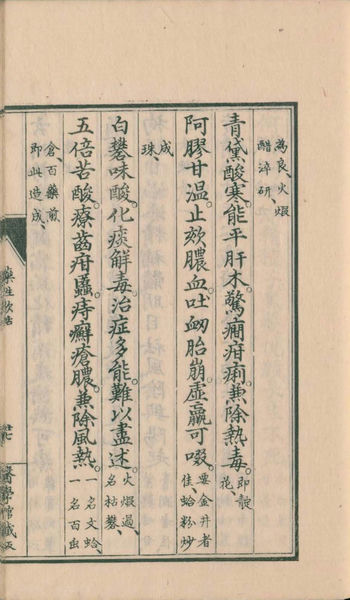 為良火煅
醋淬研
青黛酸寒能平肝木驚癇疳痢兼除熱毒即靛
花
阿膠甘温止欬膿血吐衂胎崩虛羸可啜要金井者
佳蛤粉炒
成
珠
白礬味酸化痰解毒治症多能難以盡述火煅過
名枯礬
五倍苦酸療齒疳䘌痔癬瘡膿兼除風熱一名文蛤
一名百虫
倉百藥煎
即此造成
藥性歌括